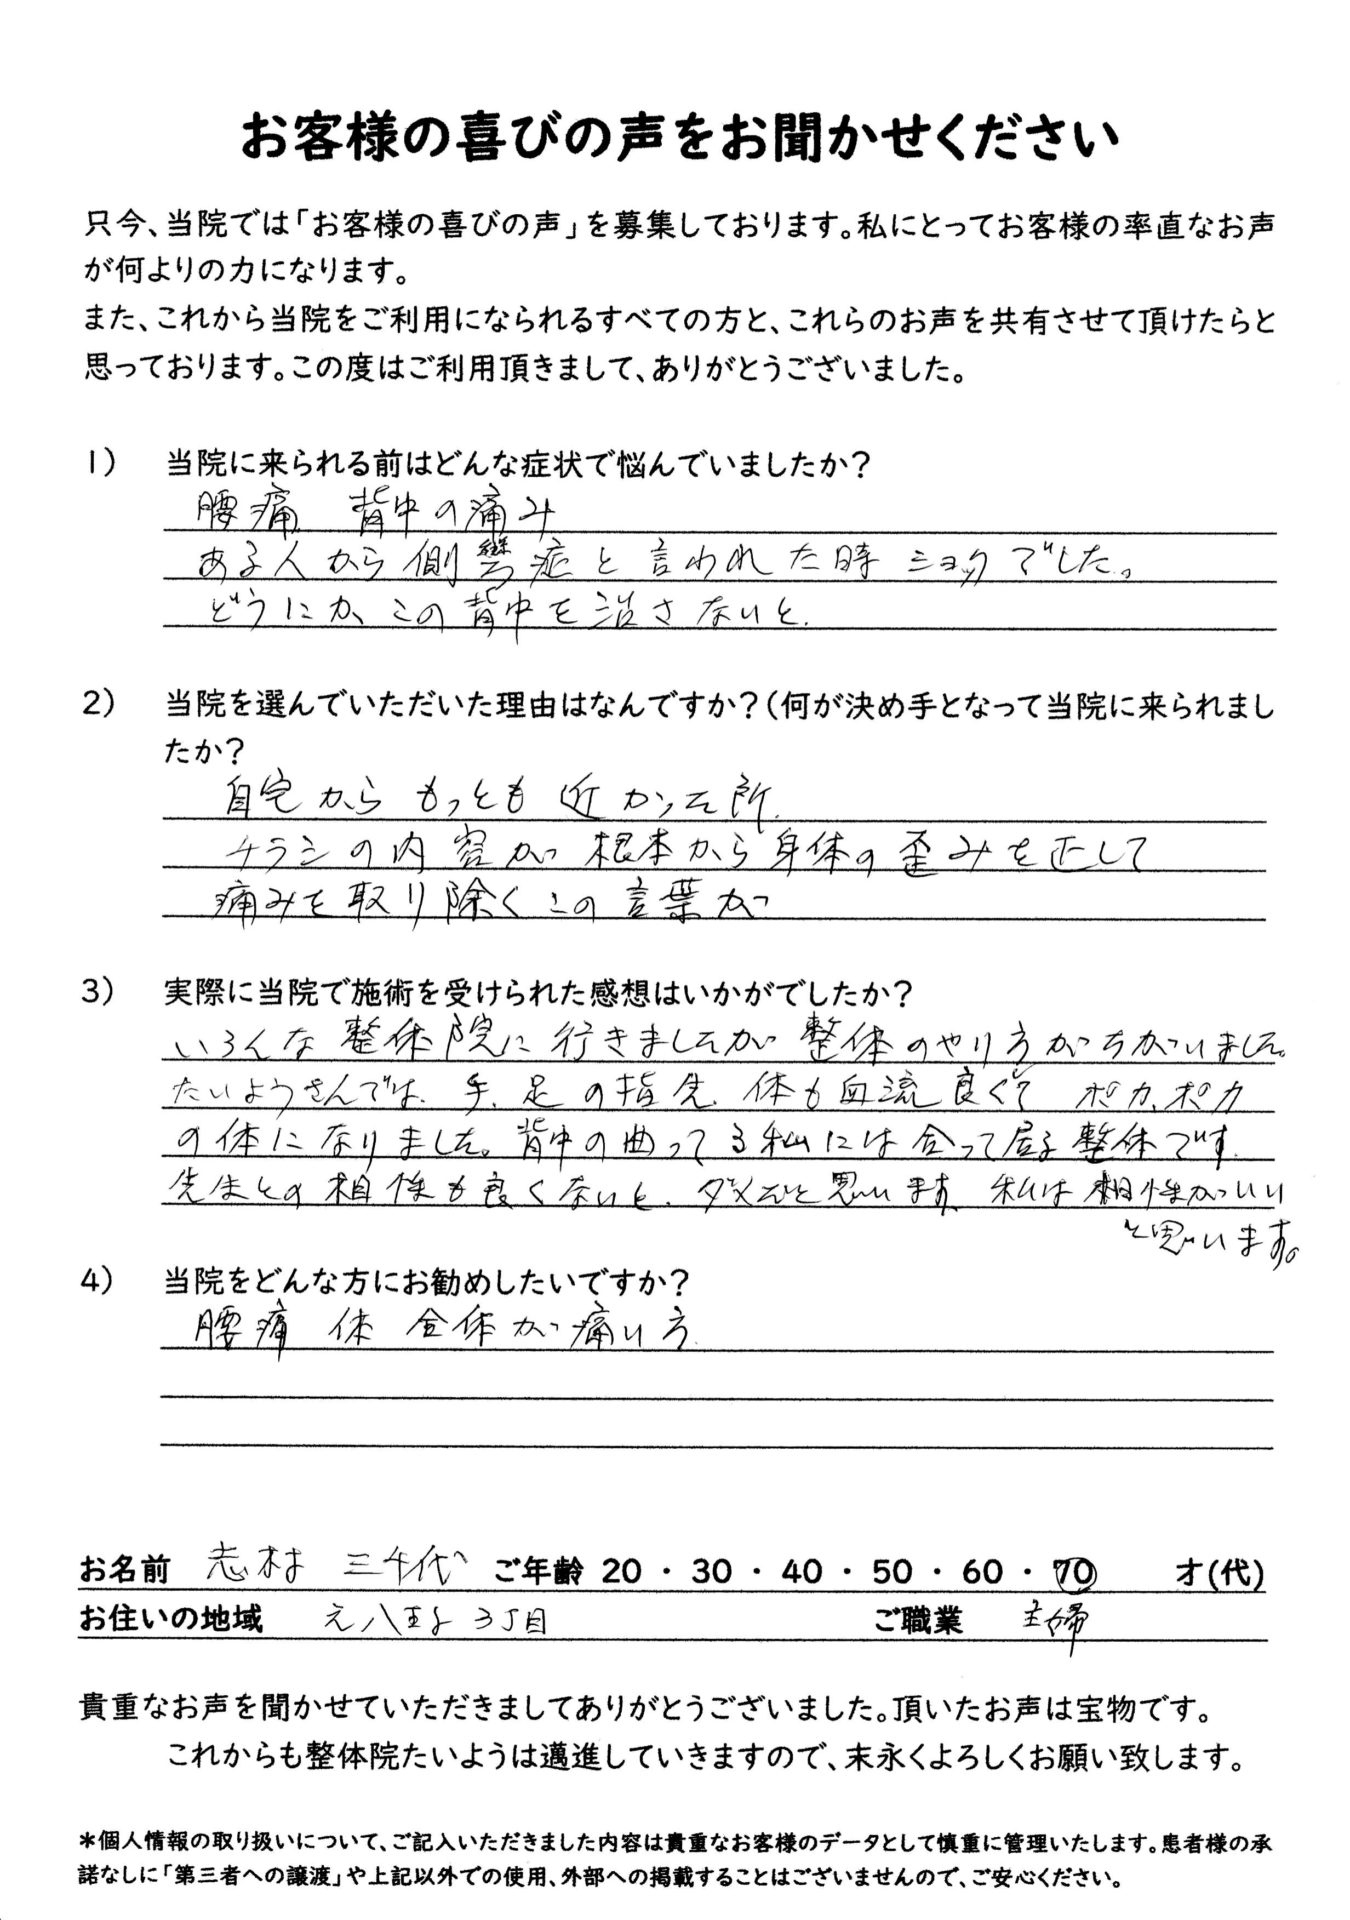 お客様の喜びの声をお聞かせください
只今、当院では「お客様の喜びの声」を募集しております。私にとってお客様の率直なお声
が何よりの力になります。
また、これから当院をご利用になられるすべての方と、これらのお声を共有させて頂けたらと
思っております。この度はご利用頂きまして、ありがとうございました。
1) 当院に来られる前はどんな症状で悩んでいましたか?
腰痛 背中の痛み
ある人から側彎症と言われた時 ショックでした。
どうにか、この背中を治さないと、
2) 当院を選んでいただいた理由はなんですか?(何が決め手となって当院に来られまし
たか?
自宅から もっとも 近かった所、
チラシの内容が 根本から身体の歪みを正して
痛みを取り除くこの言葉が
3) 実際に当院で施術を受けられた感想はいかがでしたか?
いろんな整体院に行きましたが 整体のやり方がちがいました。
たいようさんでは、手、足の指先、体も血流良くて ポカ、ポカ
の体になりました。背中の曲ってる私には合って居る整体です。
先生との相性も良くないと、ダメだと思います、私は相性がいい
と思います。
4) 当院をどんな方にお勧めしたいですか?
腰痛 体 全体が痛い方、
お名前 志村 三千代 ご年齢 20 ・ 30 ・ 40 ・ 50 ・ 60 ・ 70 才(代)
お住いの地域 元八王子3丁目 ご職業 主婦
貴重なお声を聞かせていただきましてありがとうございました。頂いたお声は宝物です。
これからも整体院たいようは邁進していきますので、末永くよろしくお願い致します。
*個人情報の取り扱いについて、ご記入いただきました内容は貴重なお客様のデータとして慎重に管理いたします。患者様の承
諾なしに「第三者への譲渡」や上記以外での使用、外部への掲載することはございませんので、ご安心ください。